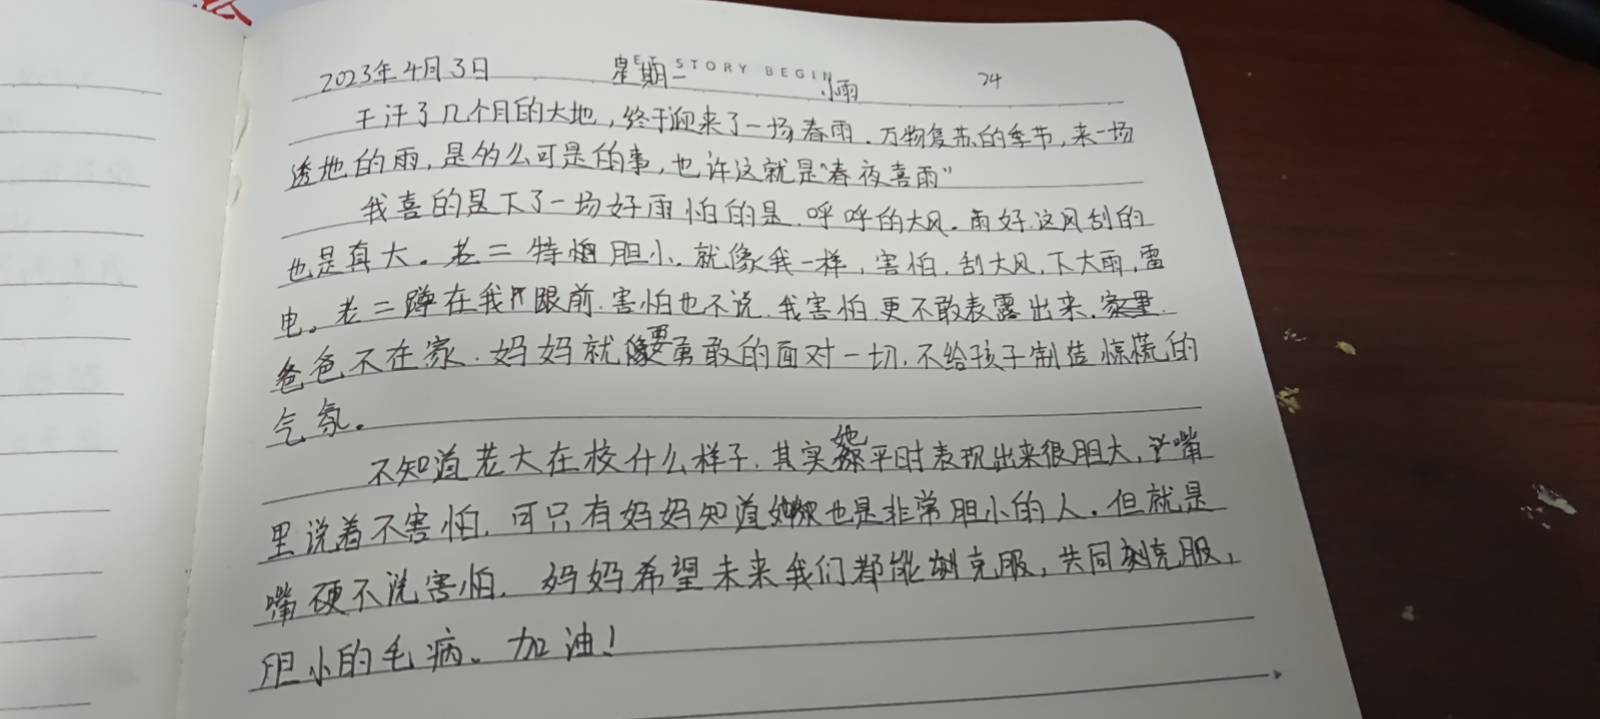 2023年4月3日 星期一 小雨 24
E STORY BEGIN
干汗了几个月的大地，终于迎来了一场春雨．万物复苏的季节，来一场
透地的雨，是多么可是的事，也许这就是“春夜喜雨”
我喜的是下了一场好雨怕的是．呼呼的大风。雨好．这风刮的
也是真大。老二特烟胆小．就像我一样，害怕．刮大风．下大雨，雷
电。老二蹲在我眼前．害怕也不说．我害怕．更不敢表露出来．家里．
爸爸不在家．妈妈就要勇敢的面对一切．不给孩子制造惊慌的
气氛。
不知道老大在校什么样子．其实她平时表现出来很胆大，嘴
里说着不害怕．可只有妈妈知道她也是非常胆小的人．但就是
嘴硬不说害怕．妈妈希望未来我们都能克服，共同克服，
胆小的毛病。加油！